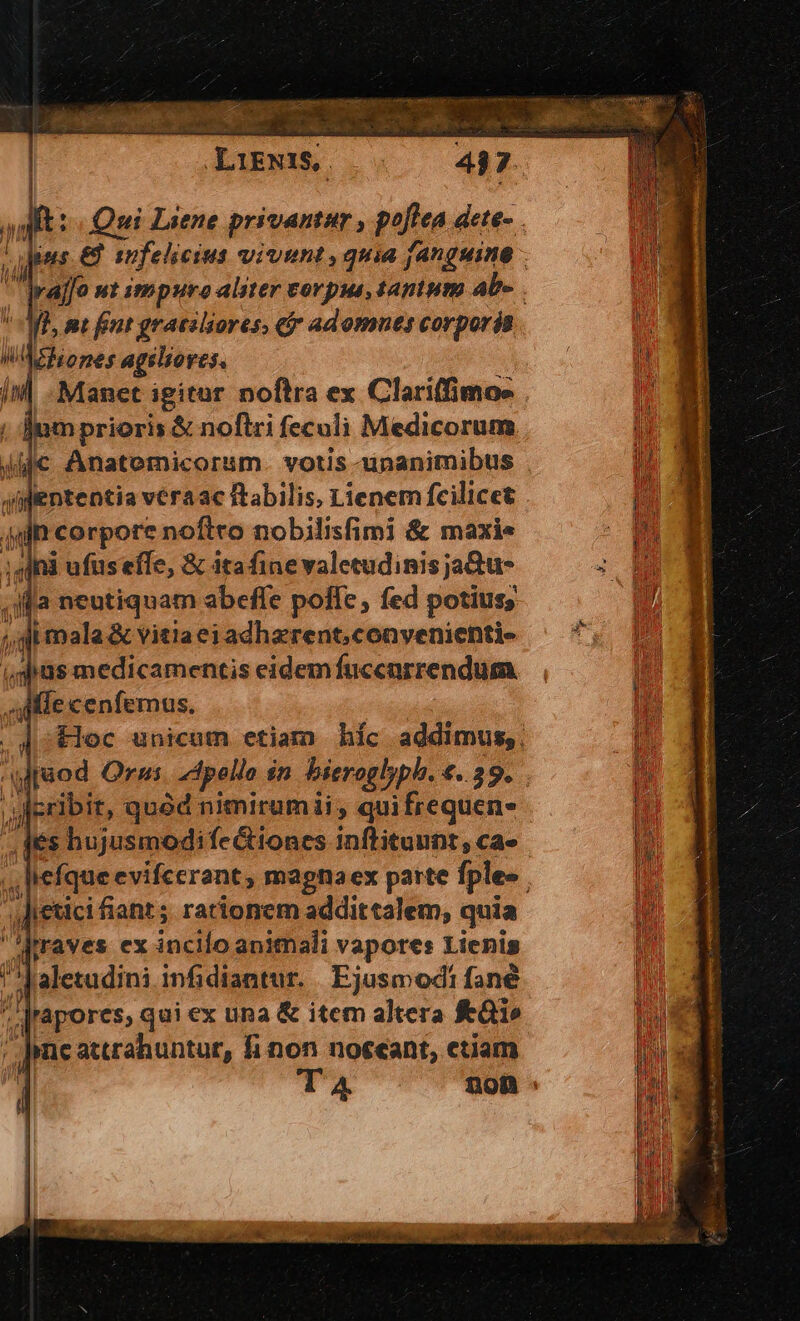 LIENIS, 437
ſt: Qui Liene privantur, poſtea dete-
ius & infelicius vivunt, quia ſanguine
raſſo ut impuro aliter corpus, tantum ab-
ſt, ut ſint graciliores, & ad omnes corporis
ctiones agiliores.
Manet igitur noſtra ex Clariſſimo-
um prioris & noſtri ſeculi Medicorum
c Anatomicorum votis unanimibus
ententia vera ac ſtabilis, Lienem ſcilicet
n corpore noſtro nobilisſimi & maxi-
ni uſus eſſe, & ita ſine valetudinis jactu-
a neutiquam abeſſe poſſe, ſed potius,
i mala & vitia ei adhærent, convenienti-
us medicamentis eidem ſuccurrendum
ſſe cenſemus.
Hoc unicum etiam hîc addimus,
uod Orus Apollo in hieroglyph. c. 39.
cribit, quòd nimirum ii, qui frequen-
es hujusmodi ſectiones inſtituunt, ca-
neſque eviſcerant, magna ex parte ſple-
netici fiant; rationem addit talem, quia
raves ex inciſo animali vapores Lienis
aletudini inſidiantur. Ejusmodi ſanè
vapores, qui ex una & item altera ſectio-
ne attrahuntur, ſi non noceant, etiam
T 4 non